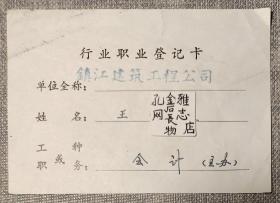 行业职业登记卡
镇江建筑工程公司
单位全称：
姓 名：王
孔网
金后长物
雅志店
工种
或
职务：会计（主办）